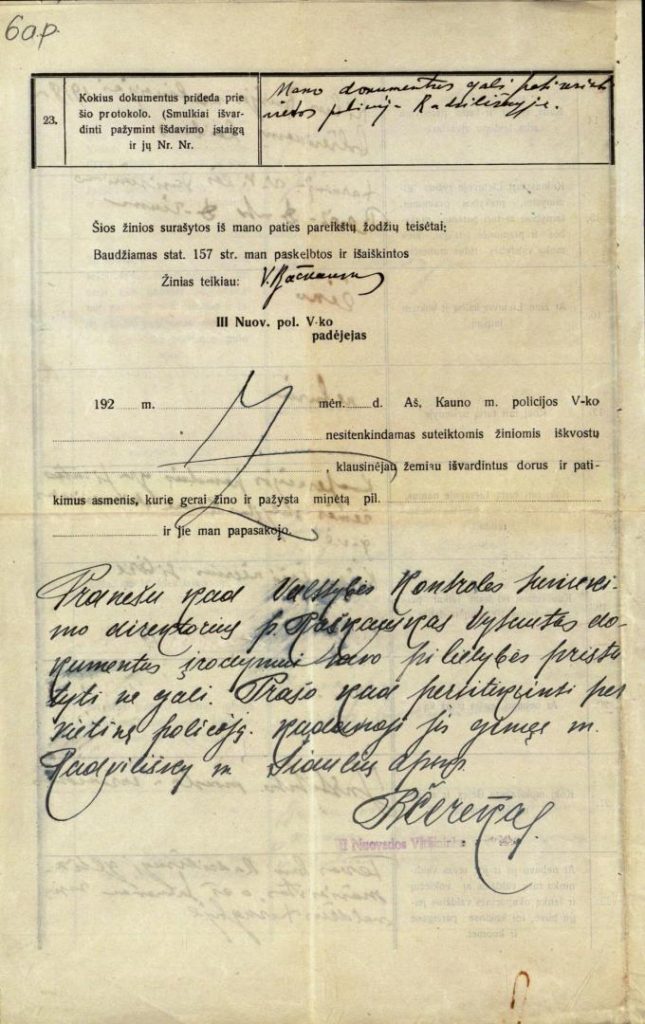 6 a.p.
23.
Kokius dokumentus prideda prie
šio protokolo. (Smulkiai išvar-
dinti pažymint išdavimo įstaigą
ir jų Nr. Nr.
Mano dokumentus gali
vietos policija Radviliškyje.
Šios žinios surašytos iš mano paties pareikštų žodžių teisėtai;
Baudžiamas stat. 157 str. man paskelbtos ir išaiškintos
Žinias teikiau: V. Račkauskas
III Nuov. pol. V-ko
padėjejas
192 m. mėn. d. Aš, Kauno m. policijos V-ko
nesitenkindamas suteiktomis žiniomis iškvostu
, klausinėjau žemiau išvardintus dorus ir pati-
kimus asmenis, kurie gerai žino ir pažysta minėtą pil.
ir jie man papasakojo.
Pranešu kad Valstybės Kontrolės
mo direktorius p. Raškauskas Vytautas do-
kumentus įrodymui savo pilietybės prista
tyti ne gali. Prašo kad per
vietinę policiją. kadangi jis gimęs m.
Radviliškų m. Šiaulių apsk.
II Nuovados